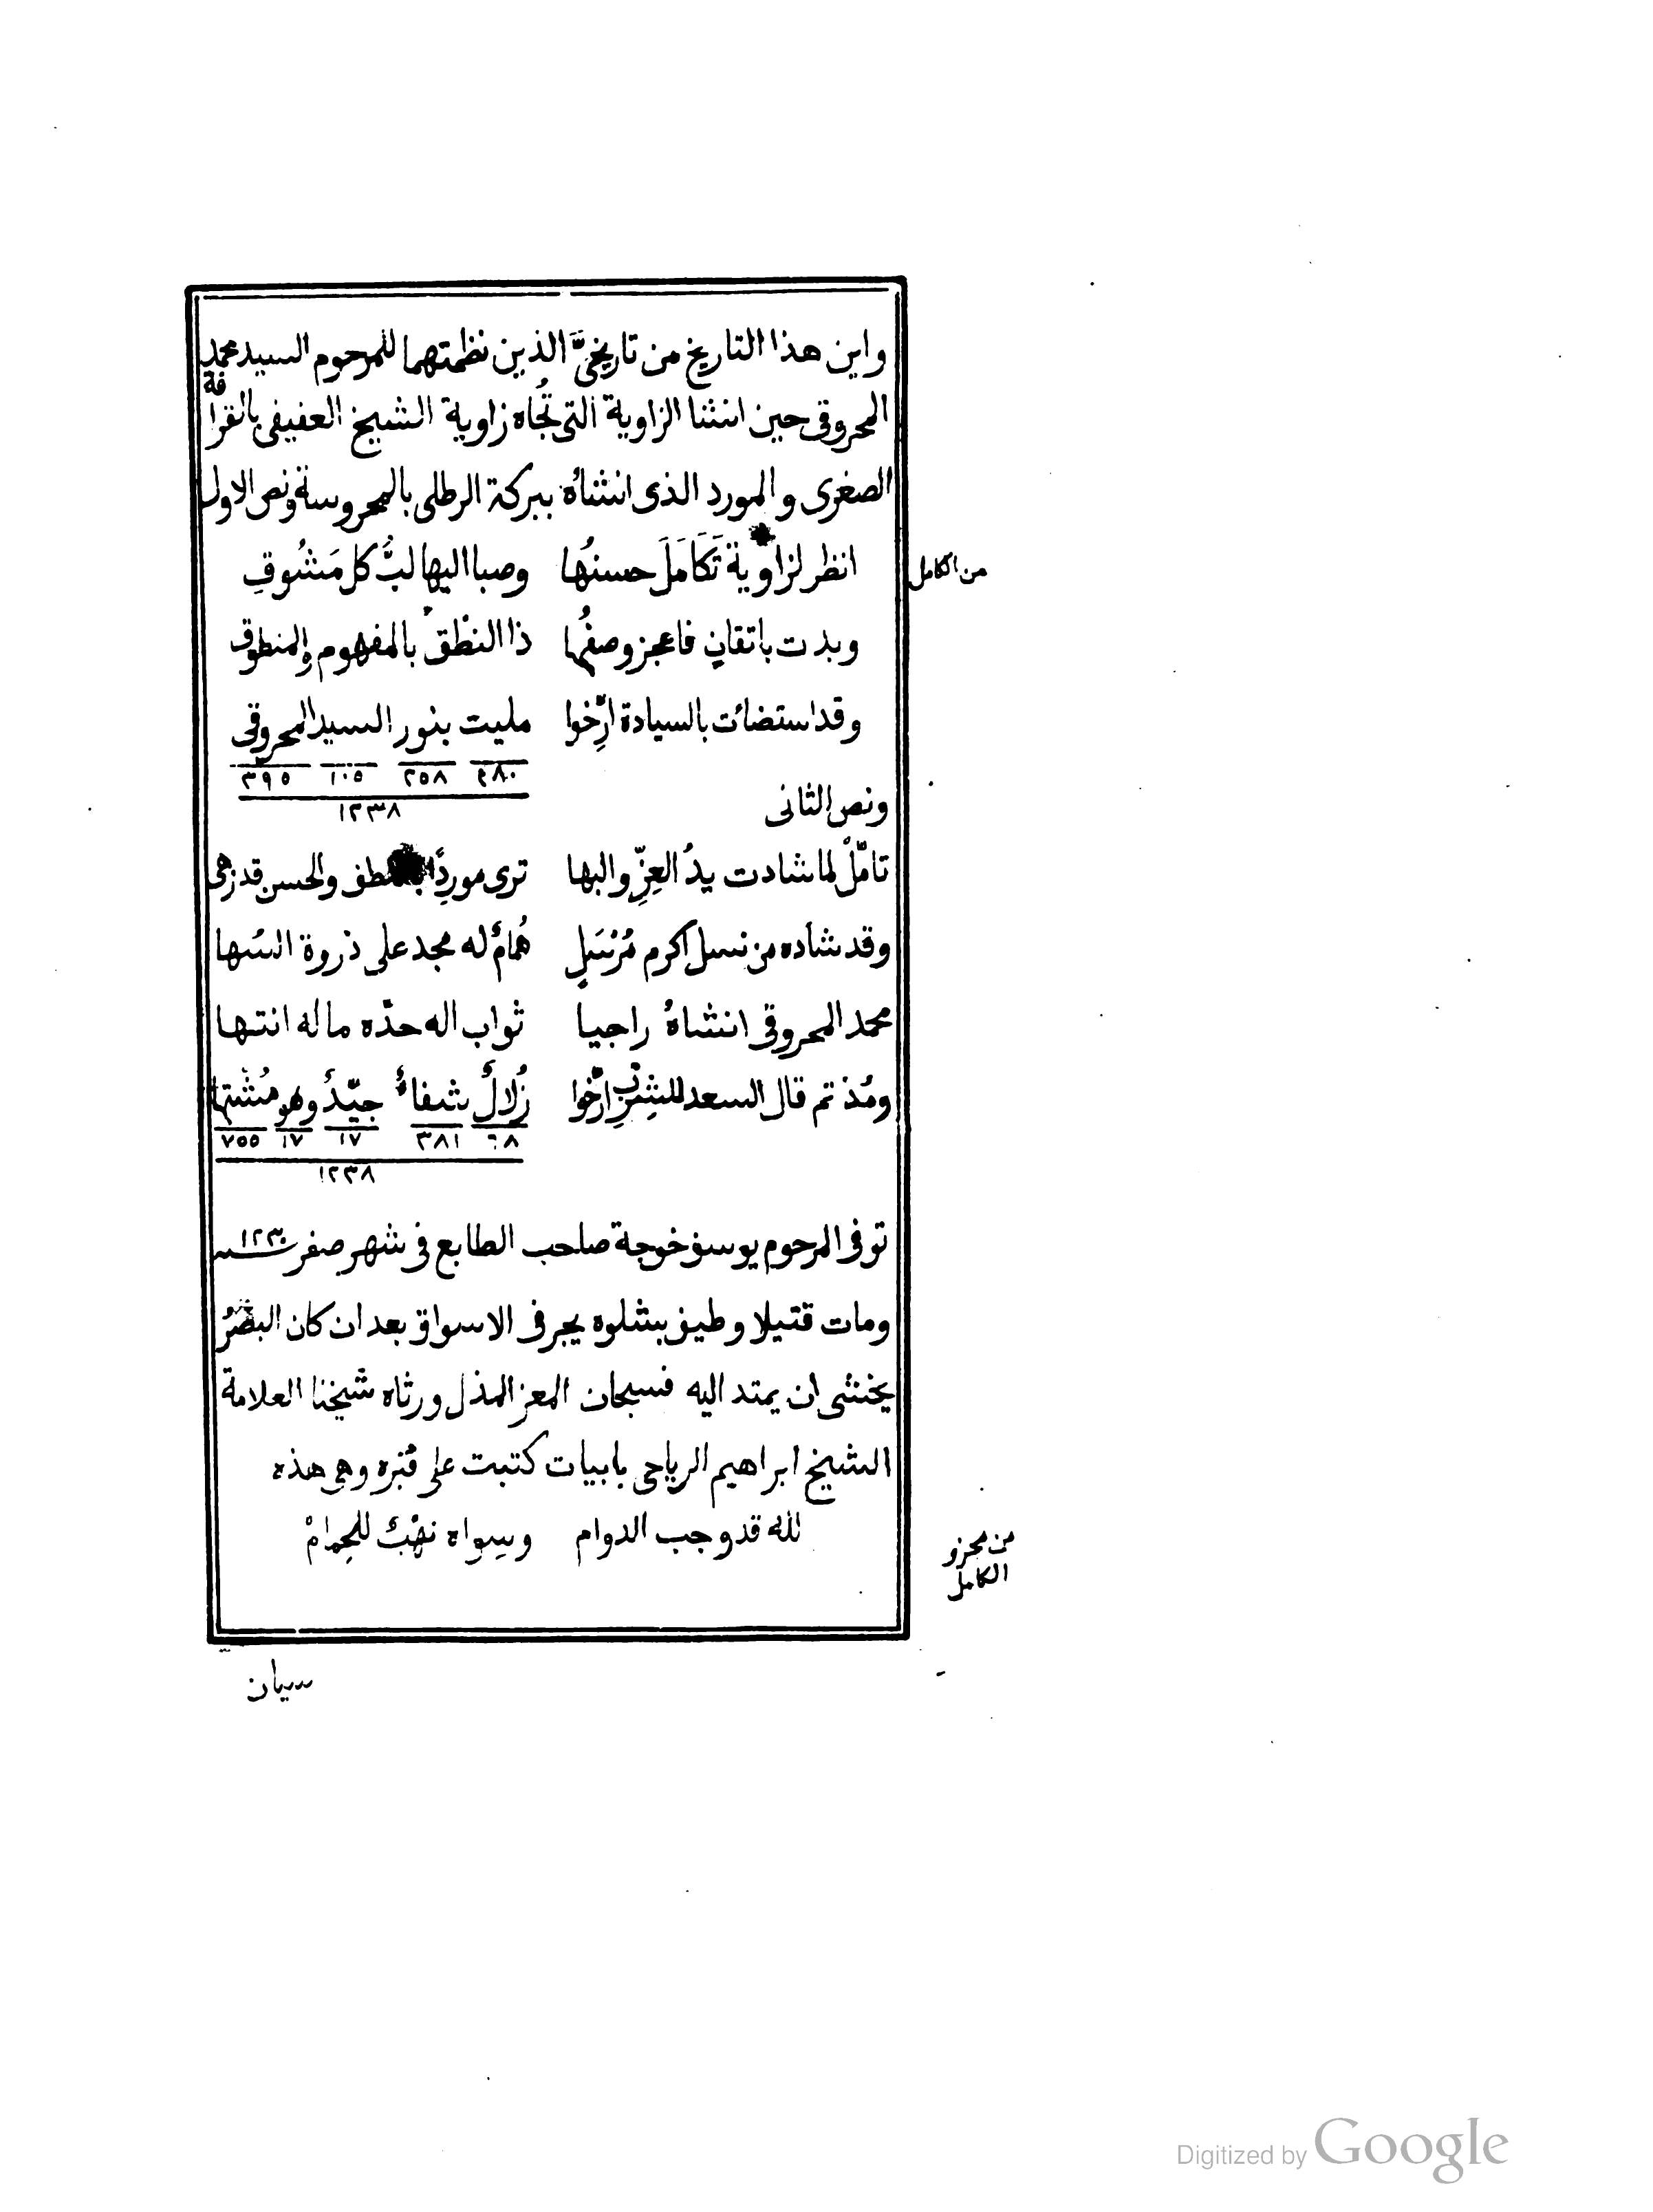 واين هذا التاريخ من تاريخيَّ الذين نظمتهما للمرحوم السيد محمد
المحروقى حين انشا الزاوية التى تُجاه زاوية الشيخ العفيفى بالقرافة
الصغرى والمورد الذى انشاه ببركة الرطلى بالمحروسة ونص الاول
من الكامل
انظر لزاوية تَكَامَلَ حسنُها وصبا اليها لبُّ كل مَشُوقِ
وبدت باتقانٍ فاعجز وصفُها ذا النطْق بالمفهوم والمنطوق
وقد استضائت بالسيادة ارِّخوا مليت بنور السيد المحروقى
٤٨٠ ٢٥٨ ١٠٥ ٣٩٥
١٢٣٨
ونص الثانى
تامّلْ لما شادت يدُ العِزِّ والبها ترى موردًا قد زهى والحسن
وقد شاده من نسل اكرم مُرْسَلٍ هُمامٌ له مجد على ذروة السُها
محمد المحروقى انشاهُ راجيا ثواب اله حدّه ما له انتها
ومُذ تم قال السعد للشِربِ ارِّخوا زُلالٌ شفاءٌ جيّدٌ وهو مُشتها
٦٨ ٣٨١ ١٧ ١٧ ٧٥٥
١٢٣٨
توفى المرحوم يوسف خوجة صاحب الطابع فى شهر صفر سنة ١٢٣٠
ومات قتيلا وطيف بشلوه يجر فى الاسواق بعد ان كان البصرُ
يخشى ان يمتد اليه فسبحان المعز المذل ورثاه شيخنا العلامة
الشيخ ابراهيم الرياحى بابيات كتبت على قبره وهى هذه
من مجزو
الكامل
لله قد وجب الدوام وسِواه نهْبٌ للحِمامْ
سيان
Digitized by Google